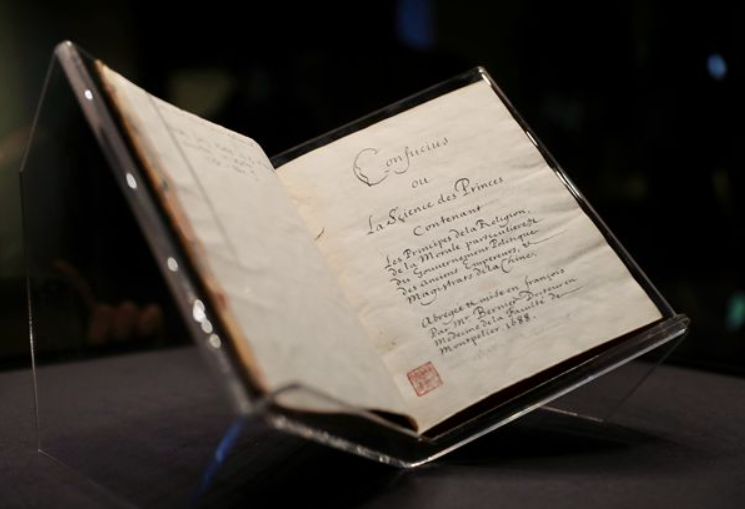 Confucius
ou
La Science des Princes
Contenant
Les Principes de la Religion,
de la Morale particuliere,
du Gouvernement Politique
des anciens Empereurs, &
Magistrats de la Chine.
Abregée & mise en françois
Par Mr Bernier Docteur en
Medecine de la Faculté de
Montpelier. 1688.